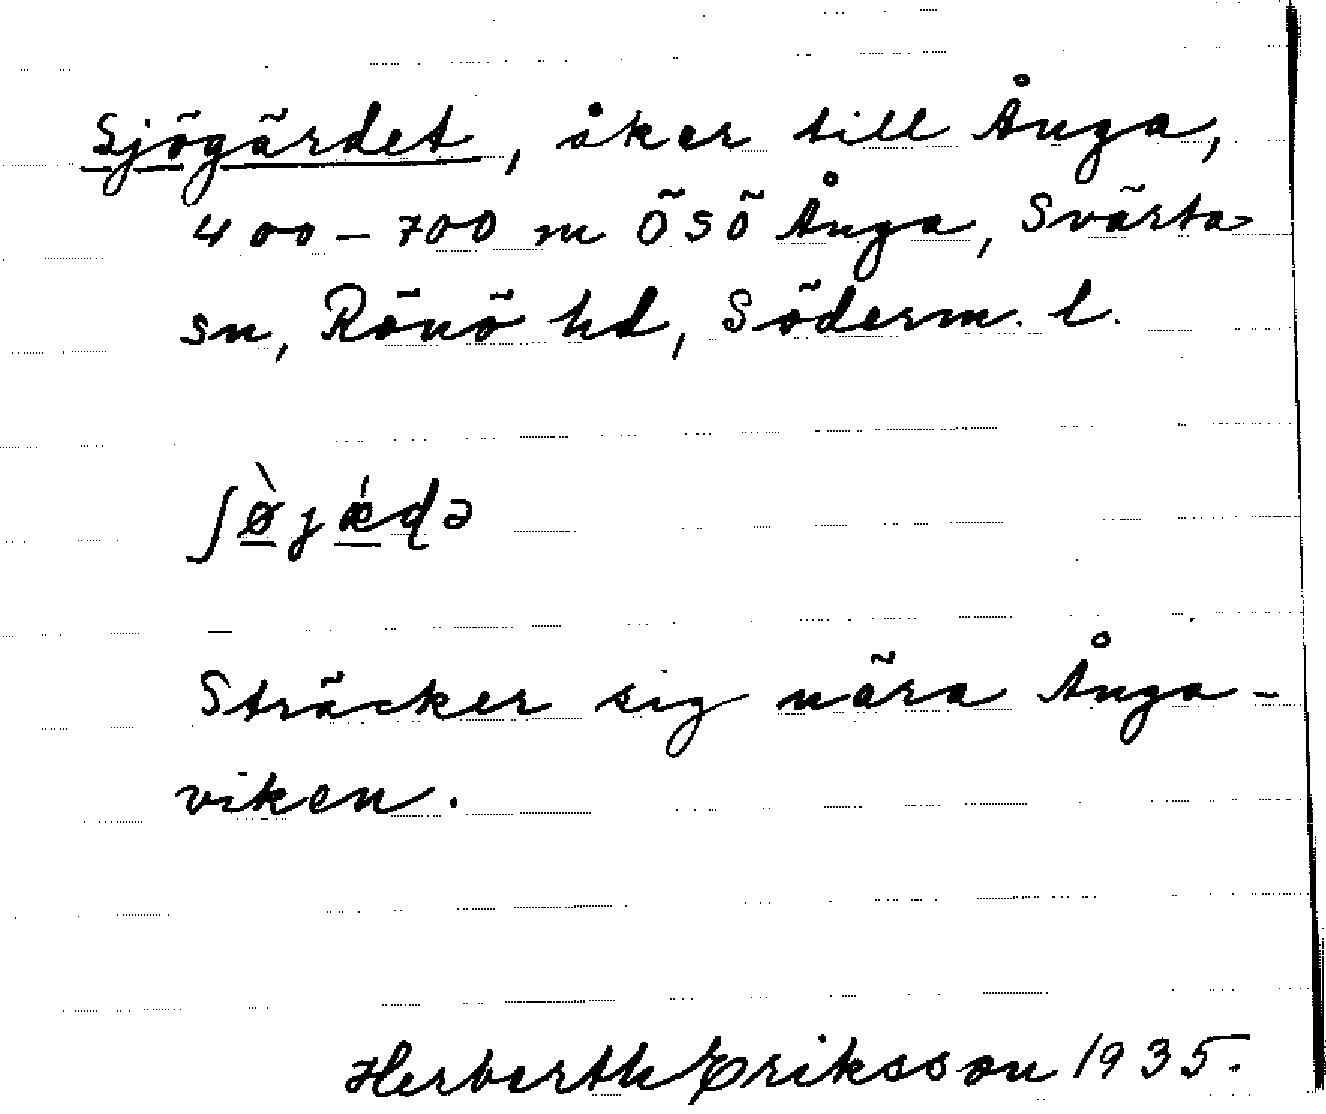 Sjögärdet, åker till Ånga,
400–700 m ÖSÖ Ånga, Svärta
sn, Rönö hd, Söderm. l.
ʃø̀jǽɖə
Sträcker sig nära Ånga-
viken.
Herberth Eriksson 1935.